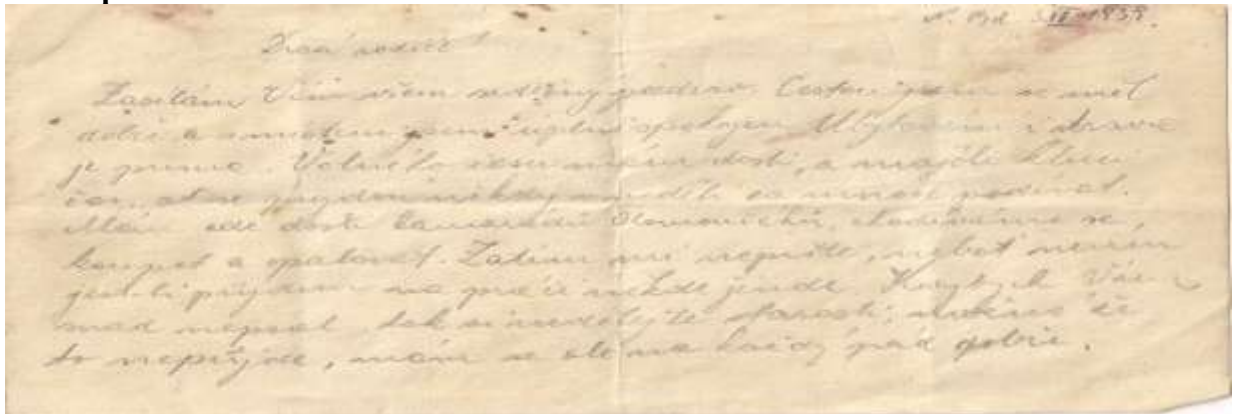 1939.
Drazí rodiče!
Zasílám Vám všem srdečný pozdrav. Cestou jsem se měl
dobře a s místem jsem úplně spokojen. Ubytování i strava
je prima. Volného času mám dosti, a
čas, ať se někdy v neděli za mnou podívat.
Mám zde dosti kamarádů, chodíváme se
koupat a opalovat. Zatím mi nepište, neboť nevím
jestli přijdem na práci někde jinde. Kdybych Vám
snad nepsal, tak si nedělejte starosti, že
to nepřijde, mám se ale na každý pád dobře.